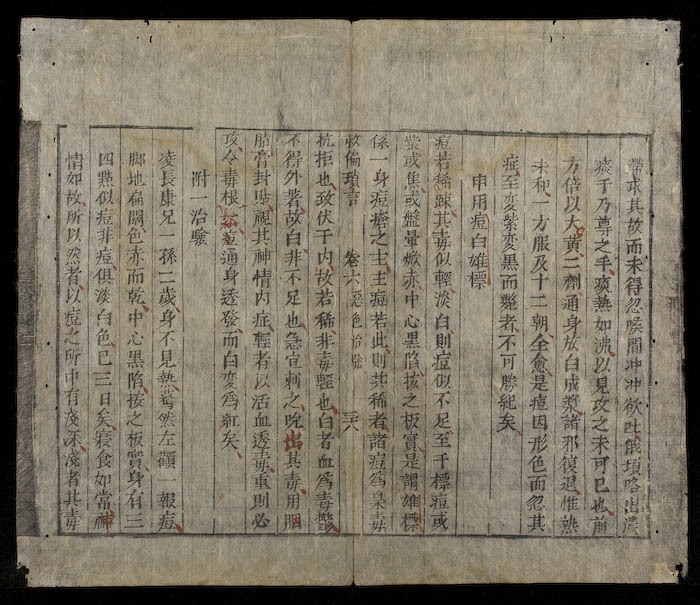 滯求其故而未得忽喉間冲冲欲吐俄頃略出濃
痰于乃尊之手痰熱如沸以見攻之未可已也前
方倍以大黃二劑通身放白成漿諸那復退惟熱
未和一方服及十二朝全愈是痘因形色而忽其
症至变紫变黑而斃者不可勝紀矣
申用痘白雄標
痘若稀踈其毒似輕淡白則痘似不足至于標痘或
紫或焦或盤暈㷫赤中心黑陷按之板實是謂雄標
係一身痘瘡之主主痘若此則其稀者諸痘爲梟毒
救偏瑣言 卷六 惡色治驗 三六
抗拒也致伏于内故若稀非毒輕也白者血爲毒
不得外著故白非不足也急宣剌之晩出其毒用胭
脂膏封貼視其神情内症輕者以活血透毒重則必
攻令毒根松痘通身透發而白变爲紅矣
附一治驗
凌長康兄一孫二歲身不見熱驀然左顴一報痘
脚地偏闊色赤而乾中心黑陷按之板實身有三
四㸃似痘非痘俱淡白色已三日矣寢食如常神
情如故所以然者以痘之所中有淺深淺者其毒